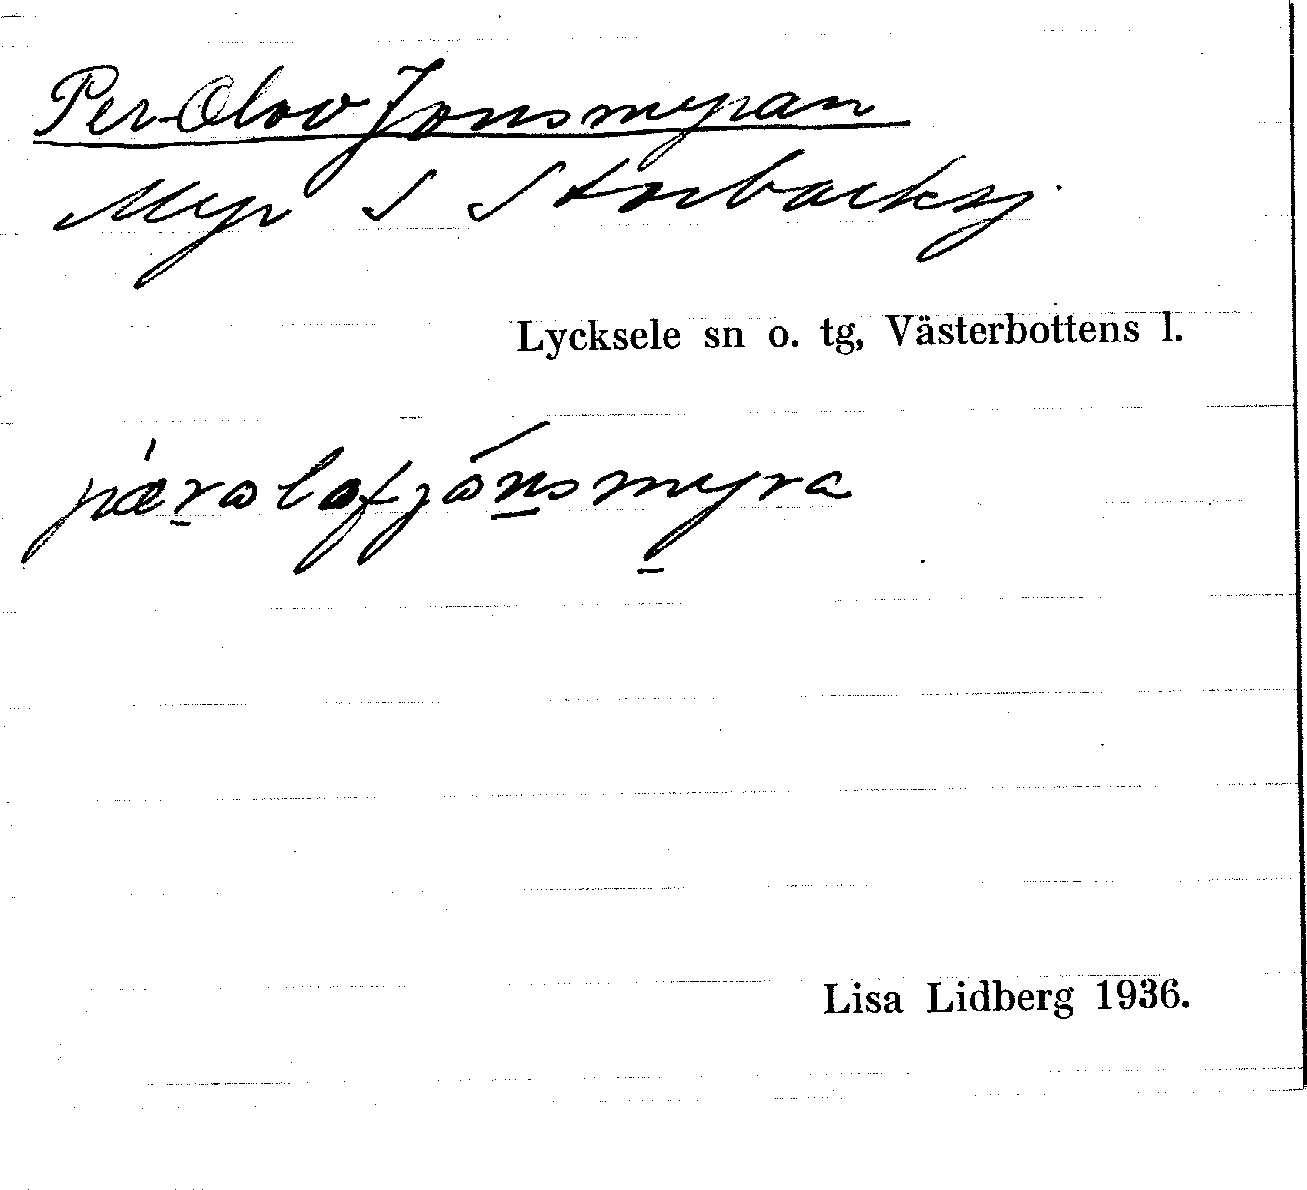 Per-Olov Jonsmyran
Myr S Storbacksj.
Lycksele sn o. tg, Västerbottens l.
pæ̀rɷlofjɷ́nsmyra
Lisa Lidberg 1936.